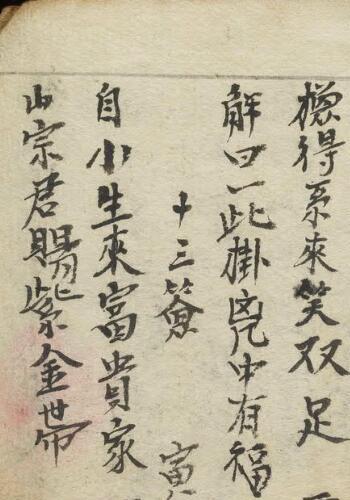 得來笑双足
解曰一此掛兇中有福
十三簽 富
自小生來富貴家
山宗君賜紫金帶